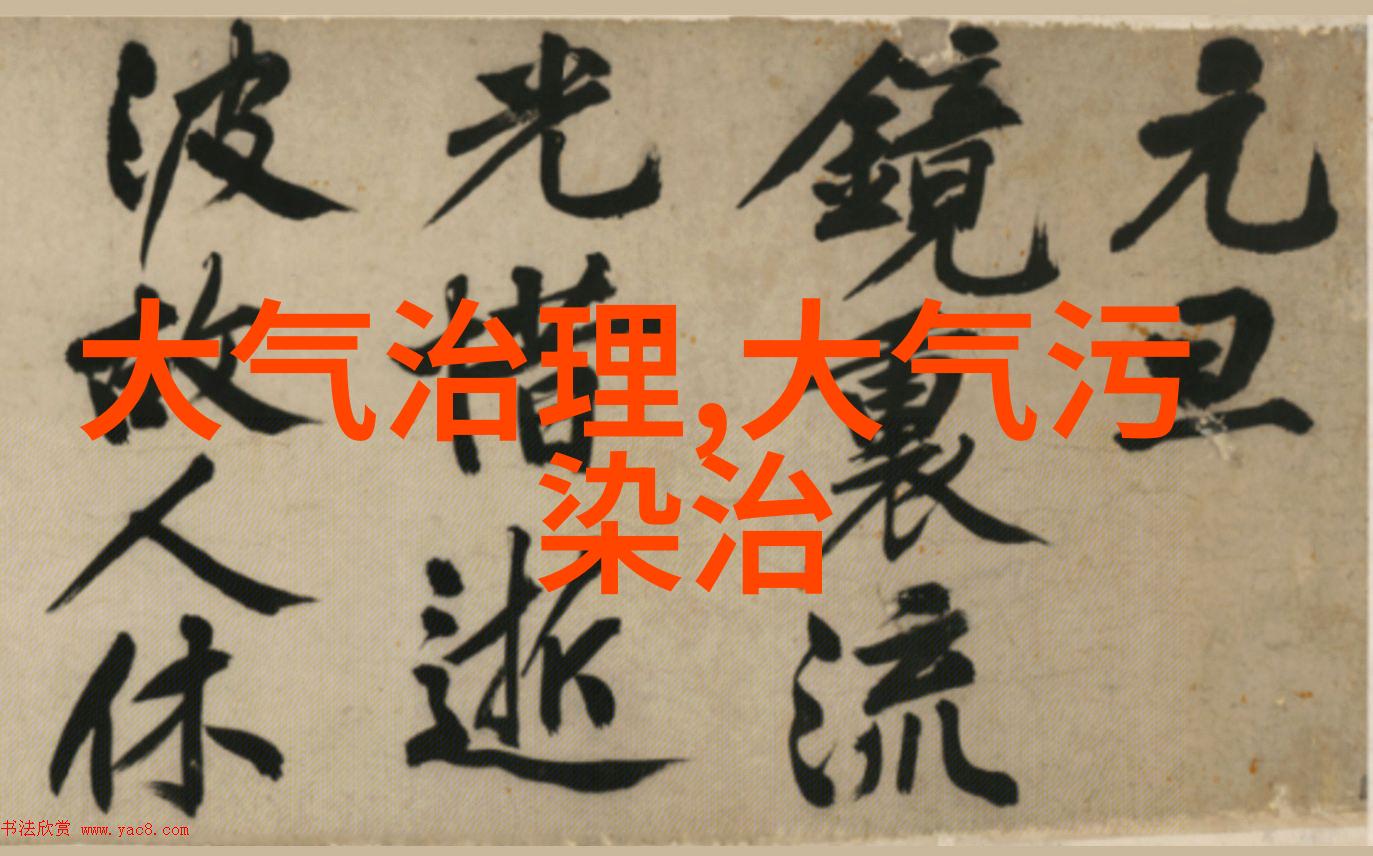 元旦
鏡裏流
光惜逝
波故人休
大气治理,大气污
染治
书法欣赏 www.yac8.com